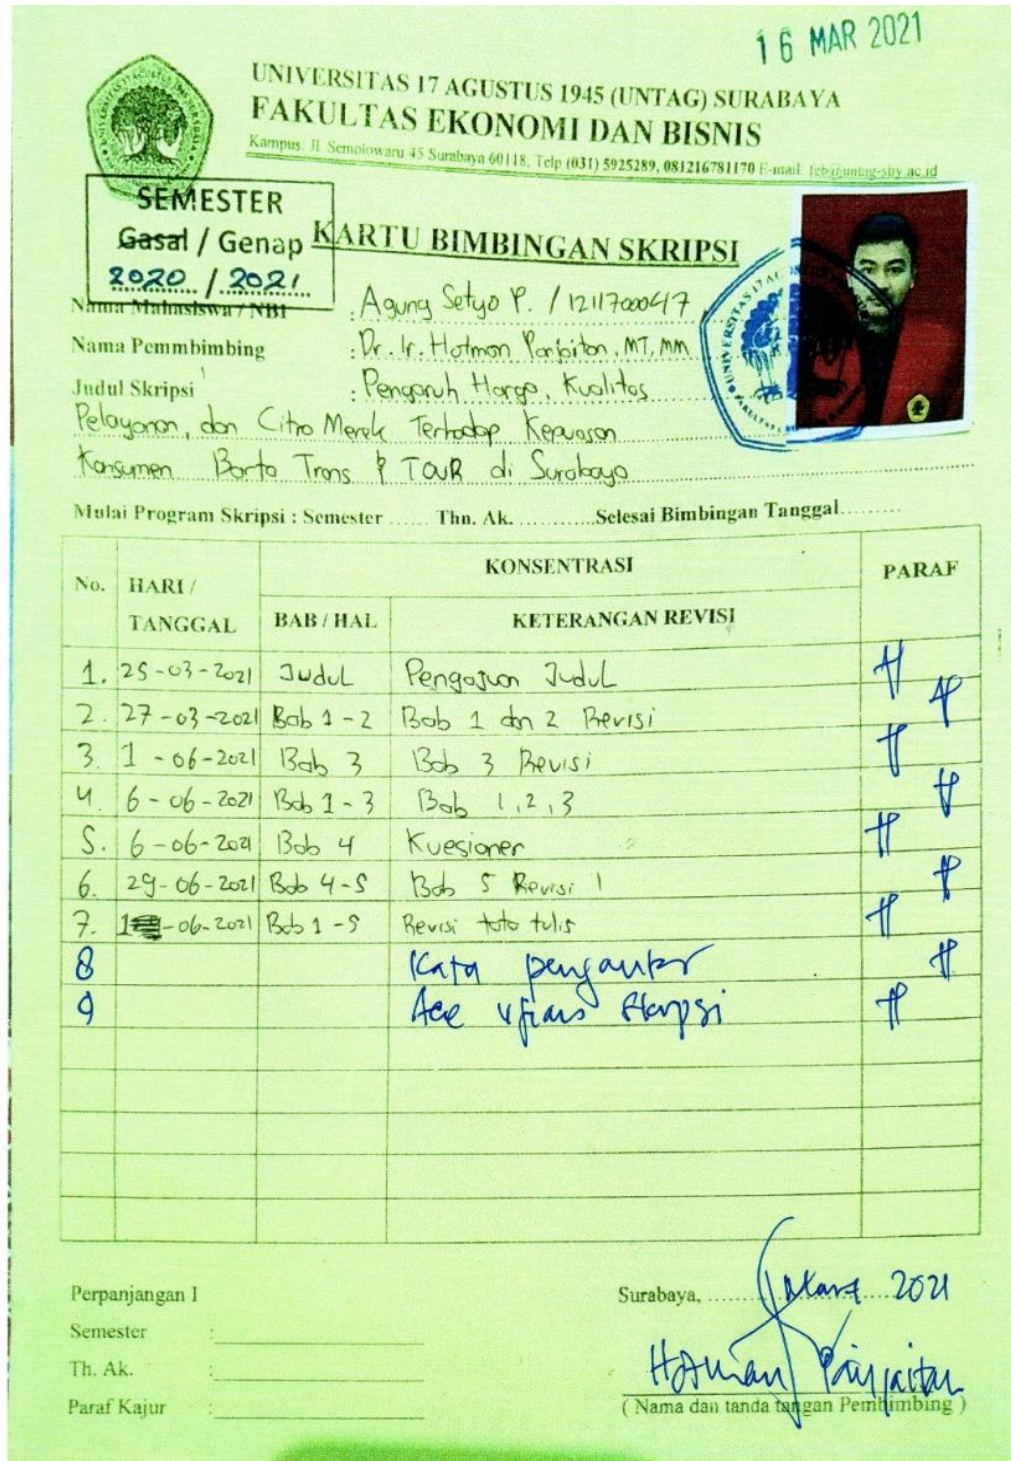 16 MAR 2021
UNIVERSITAS 17 AGUSTUS 1945 (UNTAG) SURABAYA
FAKULTAS EKONOMI DAN BISNIS
Kampus: Jl. Semolowaru 45 Surabaya 60118, Telp (031) 5925289, 081216781170 E-mail: feb@untag-sby.ac.id
SEMESTER
Gasal / Genap
2020 / 2021
KARTU BIMBINGAN SKRIPSI
Nama Mahasiswa / NBI : Agung Setyo P. / 1211700047
Nama Pemmbimbing : Dr. Ir. Hotman Panjaitan, MT, MM
Judul Skripsi : Pengaruh Harga, Kualitas
Pelayanan, dan Citra Merek Terhadap Kepuasan
Konsumen Barta Trans & TOUR di Surabaya
Mulai Program Skripsi : Semester ...... Thn. Ak. ............Selesai Bimbingan Tanggal.........
No. HARI / TANGGAL KONSENTRASI PARAF
BAB / HAL KETERANGAN REVISI
1. 25-03-2021 Judul Pengajuan Judul
2. 27-03-2021 Bab 1-2 Bab 1 dn 2 Revisi
3. 1-06-2021 Bab 3 Bab 3 Revisi
4. 6-06-2021 Bab 1-3 Bab 1,2,3
5. 6-06-2021 Bab 4 Kuesioner
6. 29-06-2021 Bab 4-5 Bab 5 Revisi 1
7. -06-2021 Bab 1-5 Revisi tata tulis
8 Kata pengantar
9 Acc ujian Skripsi
Perpanjangan I
Semester :
Th. Ak. :
Paraf Kajur :
Surabaya, 2021
Hotman Panjaitan
( Nama dan tanda tangan Pembimbing )